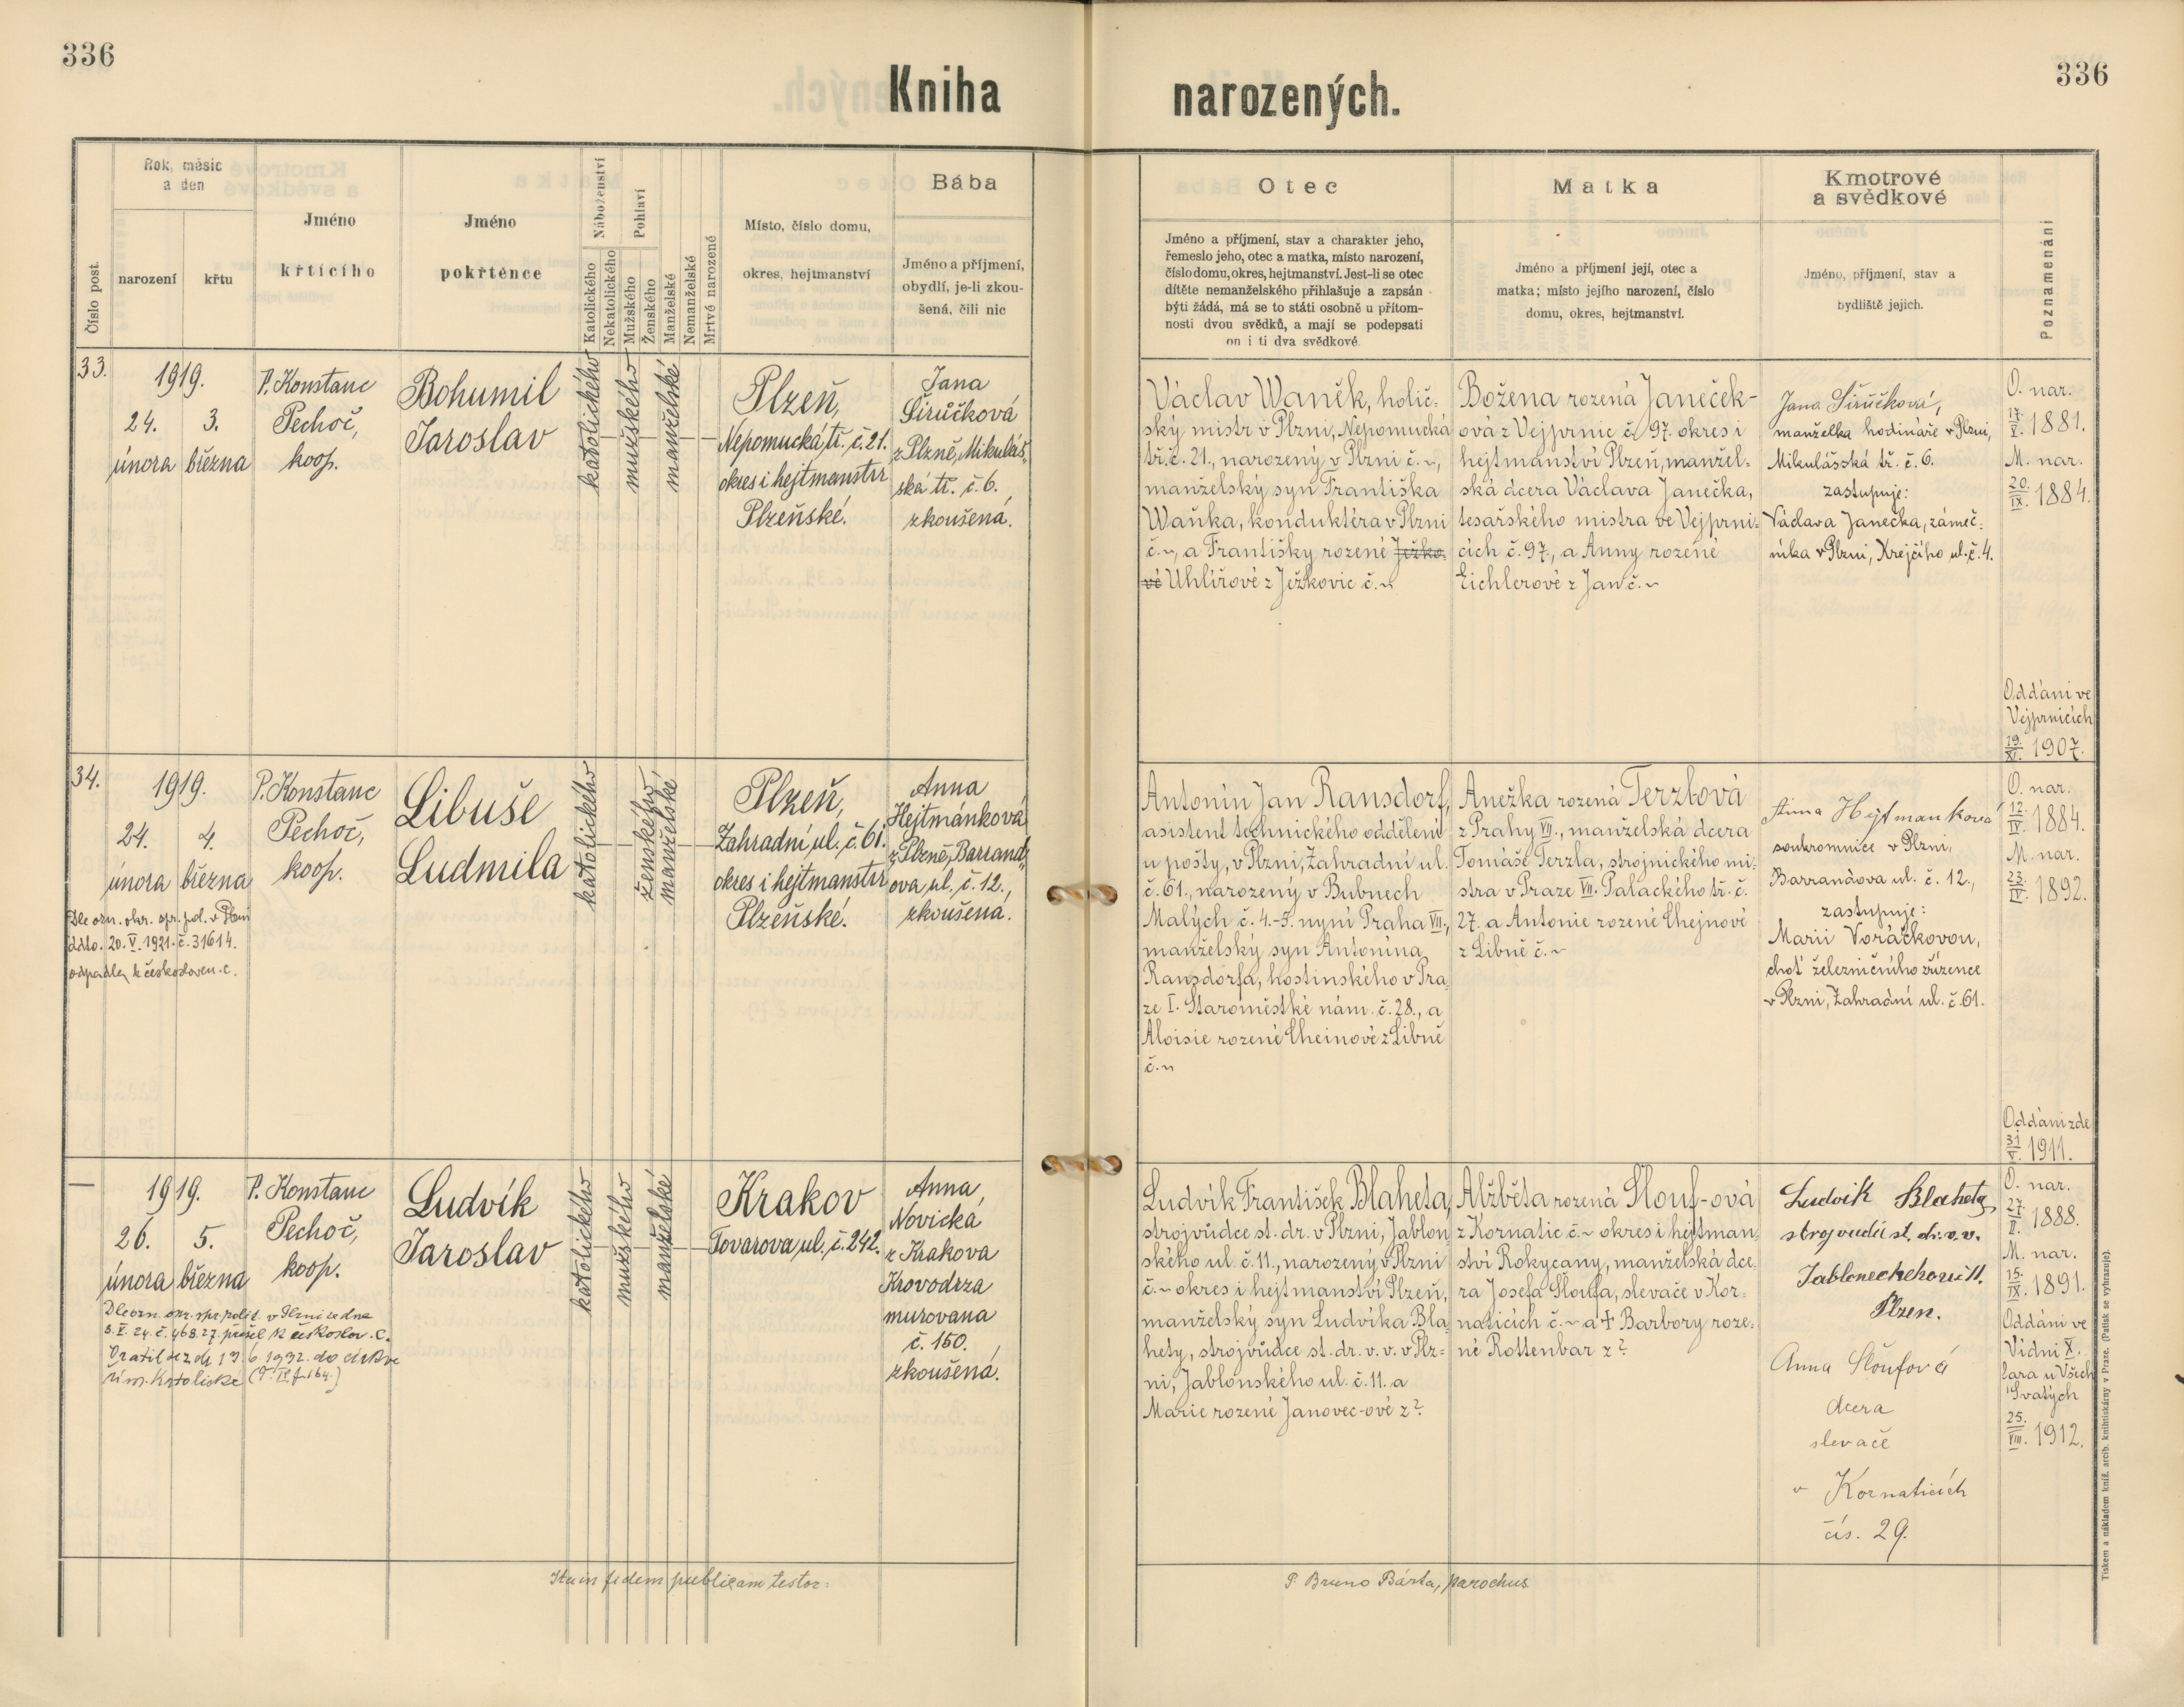 336
336
Kniha narozených.
Číslo post.
Rok, měsíc
a den
narození
křtu
Jméno
křtícího
Jméno
pokřtěnce
Náboženství
Katolického
Nekatolického
Pohlaví
Mužského
Ženského
Manželské
Nemanželské
Mrtvě narozené
Místo, číslo domu,
okres, hejtmanství
Bába
Jméno a příjmení,
obydlí, je-li zkou-
šená, čili nic
Otec
Jméno a příjmení, stav a charakter jeho,
řemeslo jeho, otec a matka, místo narození,
číslo domu, okres, hejtmanství. Jest-li se otec
dítěte nemanželského přihlašuje a zapsán
býti žádá, má se to státi osobně u přítom-
nosti dvou svědků, a mají se podepsati
on i ti dva svědkové.
Matka
Jméno a příjmení její, otec a
matka; místo jejího narození, číslo
domu, okres, hejtmanství.
Kmotrové
a svědkové
Jméno, příjmení, stav a
bydliště jejich.
Poznamenání
33.
1919.
24. 3.
února března
P. Konstanc
Pechoč,
koop.
Bohumil
Jaroslav
katolického
mužského
manželské
Plzeň,
Nepomucká tř. č. 21.
okres i hejtmanstv
Plzeňské.
Jana
Širůčková
z Plzně, Mikuláš-
ská tř. č. 6.
zkoušená.
Václav Waněk, holič-
ský mistr v Plzni, Nepomucká
tř. č. 21., narozený v Plzni č. ~,
manželský syn Františka
Waňka, konduktéra v Plzni
č. ~, a Františky rozené Ježko-
vé Uhlířové z Ježkovic č. ~
Božena rozená Janeček-
ová z Vejprnic č. 97. okres i
hejtmanství Plzeň, manžel-
ská dcera Václava Janečka,
tesařského mistra ve Vejprni-
cích č. 97., a Anny rozené
Eichlerové z Jan č. ~
Jana Širůčková,
manželka hodináře v Plzni,
Mikulášská tř. č. 6.
zastupuje:
Václava Janečka, zámeč-
níka v Plzni, Krejčího ul. č. 4.
O. nar.
17./X. 1881.
M. nar.
20./IX. 1884.
Oddáni ve
Vejprnicích
19./XI. 1907.
34.
1919.
24. 4.
února března
Dle ozn. okr. spr. pol. v Plzni
ddto. 20. V. 1921. č. 31614.
odpadla k českosloven. c.
P. Konstanc
Pechoč,
koop.
Libuše
Ludmila
katolického
ženského
manželské
Plzeň,
Zahradní ul. č. 61.
okres i hejtmanstv
Plzeňské.
Anna
Hejtmánková
z Plzně, Barrand-
ova ul. č. 12.,
zkoušená.
Antonín Jan Ransdorf,
asistent technického oddělení
u pošty, v Plzni, Zahradní ul.
č. 61., narozený v Bubnech
Malých č. 4.-5. nyní Praha VII.,
manželský syn Antonína
Ransdorfa, hostinského v Pra-
ze I. Staroměstké nám. č. 28., a
Aloisie rozené Cheinové z Libně
č. ~
Anežka rozená Terzlová
z Prahy VII., manželská dcera
Tomáše Terzla, strojnického mi-
stra v Praze VII. Palackého tř. č.
27. a Antonie rozené Chejnové
z Libně č. ~
Anna Hejtmanková
soukromnice v Plzni,
Barrandova ul. č. 12.,
zastupuje:
Marii Voráčkovou,
choť železničního zřízence
v Plzni, Zahradní ul. č. 61.
O. nar.
12./IV. 1884.
M. nar.
23./IV. 1892.
Oddáni zde
31/V. 1911.
—
1919.
26. 5.
února března
Dle ozn. okr. spr. polit. v Plzni ze dne
8. V. 24. č. 46827. přešel k českoslov. c.
Vratil se z dí 13. 6. 1932. do církve
řím. katolické (T. IV f. 164.)
P. Konstanc
Pechoč,
koop.
Ludvík
Jaroslav
katolického
mužského
manželské
Krakov
Tovarova ul. č. 242.
Anna
Novická
z Krakova
Krovodrza
murovana
č. 150.,
zkoušená.
Ludvík František Blaheta,
strojvůdce st. dr. v Plzni, Jablon-
ského ul. č. 11., narozený v Plzni
č. ~ okres i hejtmanství Plzeň,
manželský syn Ludvíka Bla-
hety, strojvůdce st. dr. v. v. v Plz-
ni, Jablonského ul. č. 11. a
Marie rozené Janovec-ové z ?.
Alžběta rozená Slouf-ová
z Kornatic č. ~ okres i hejtman-
ství Rokycany, manželská dce-
ra Josefa Sloufa, slevače v Kor-
naticích č. ~ a † Barbory roze-
né Rottenbar z ?
Ludvík Blaheta
strojvudů st. dr. v. v.
Plzen.
Anna Sloufová
dcera
slevače
v Kornaticích
čís. 29.
O. nar.
27./II. 1888.
M. nar.
15./IX. 1891.
Oddáni ve
Vídni X.
fara u Všech
Svatých
25./VIII. 1912.
Ita in fidem publicam testor:
P. Bruno Bárta, parochus
Tiskem a nákladem kníž. arcib. knihtiskárny v Praze. (Patisk se vyhrazuje).